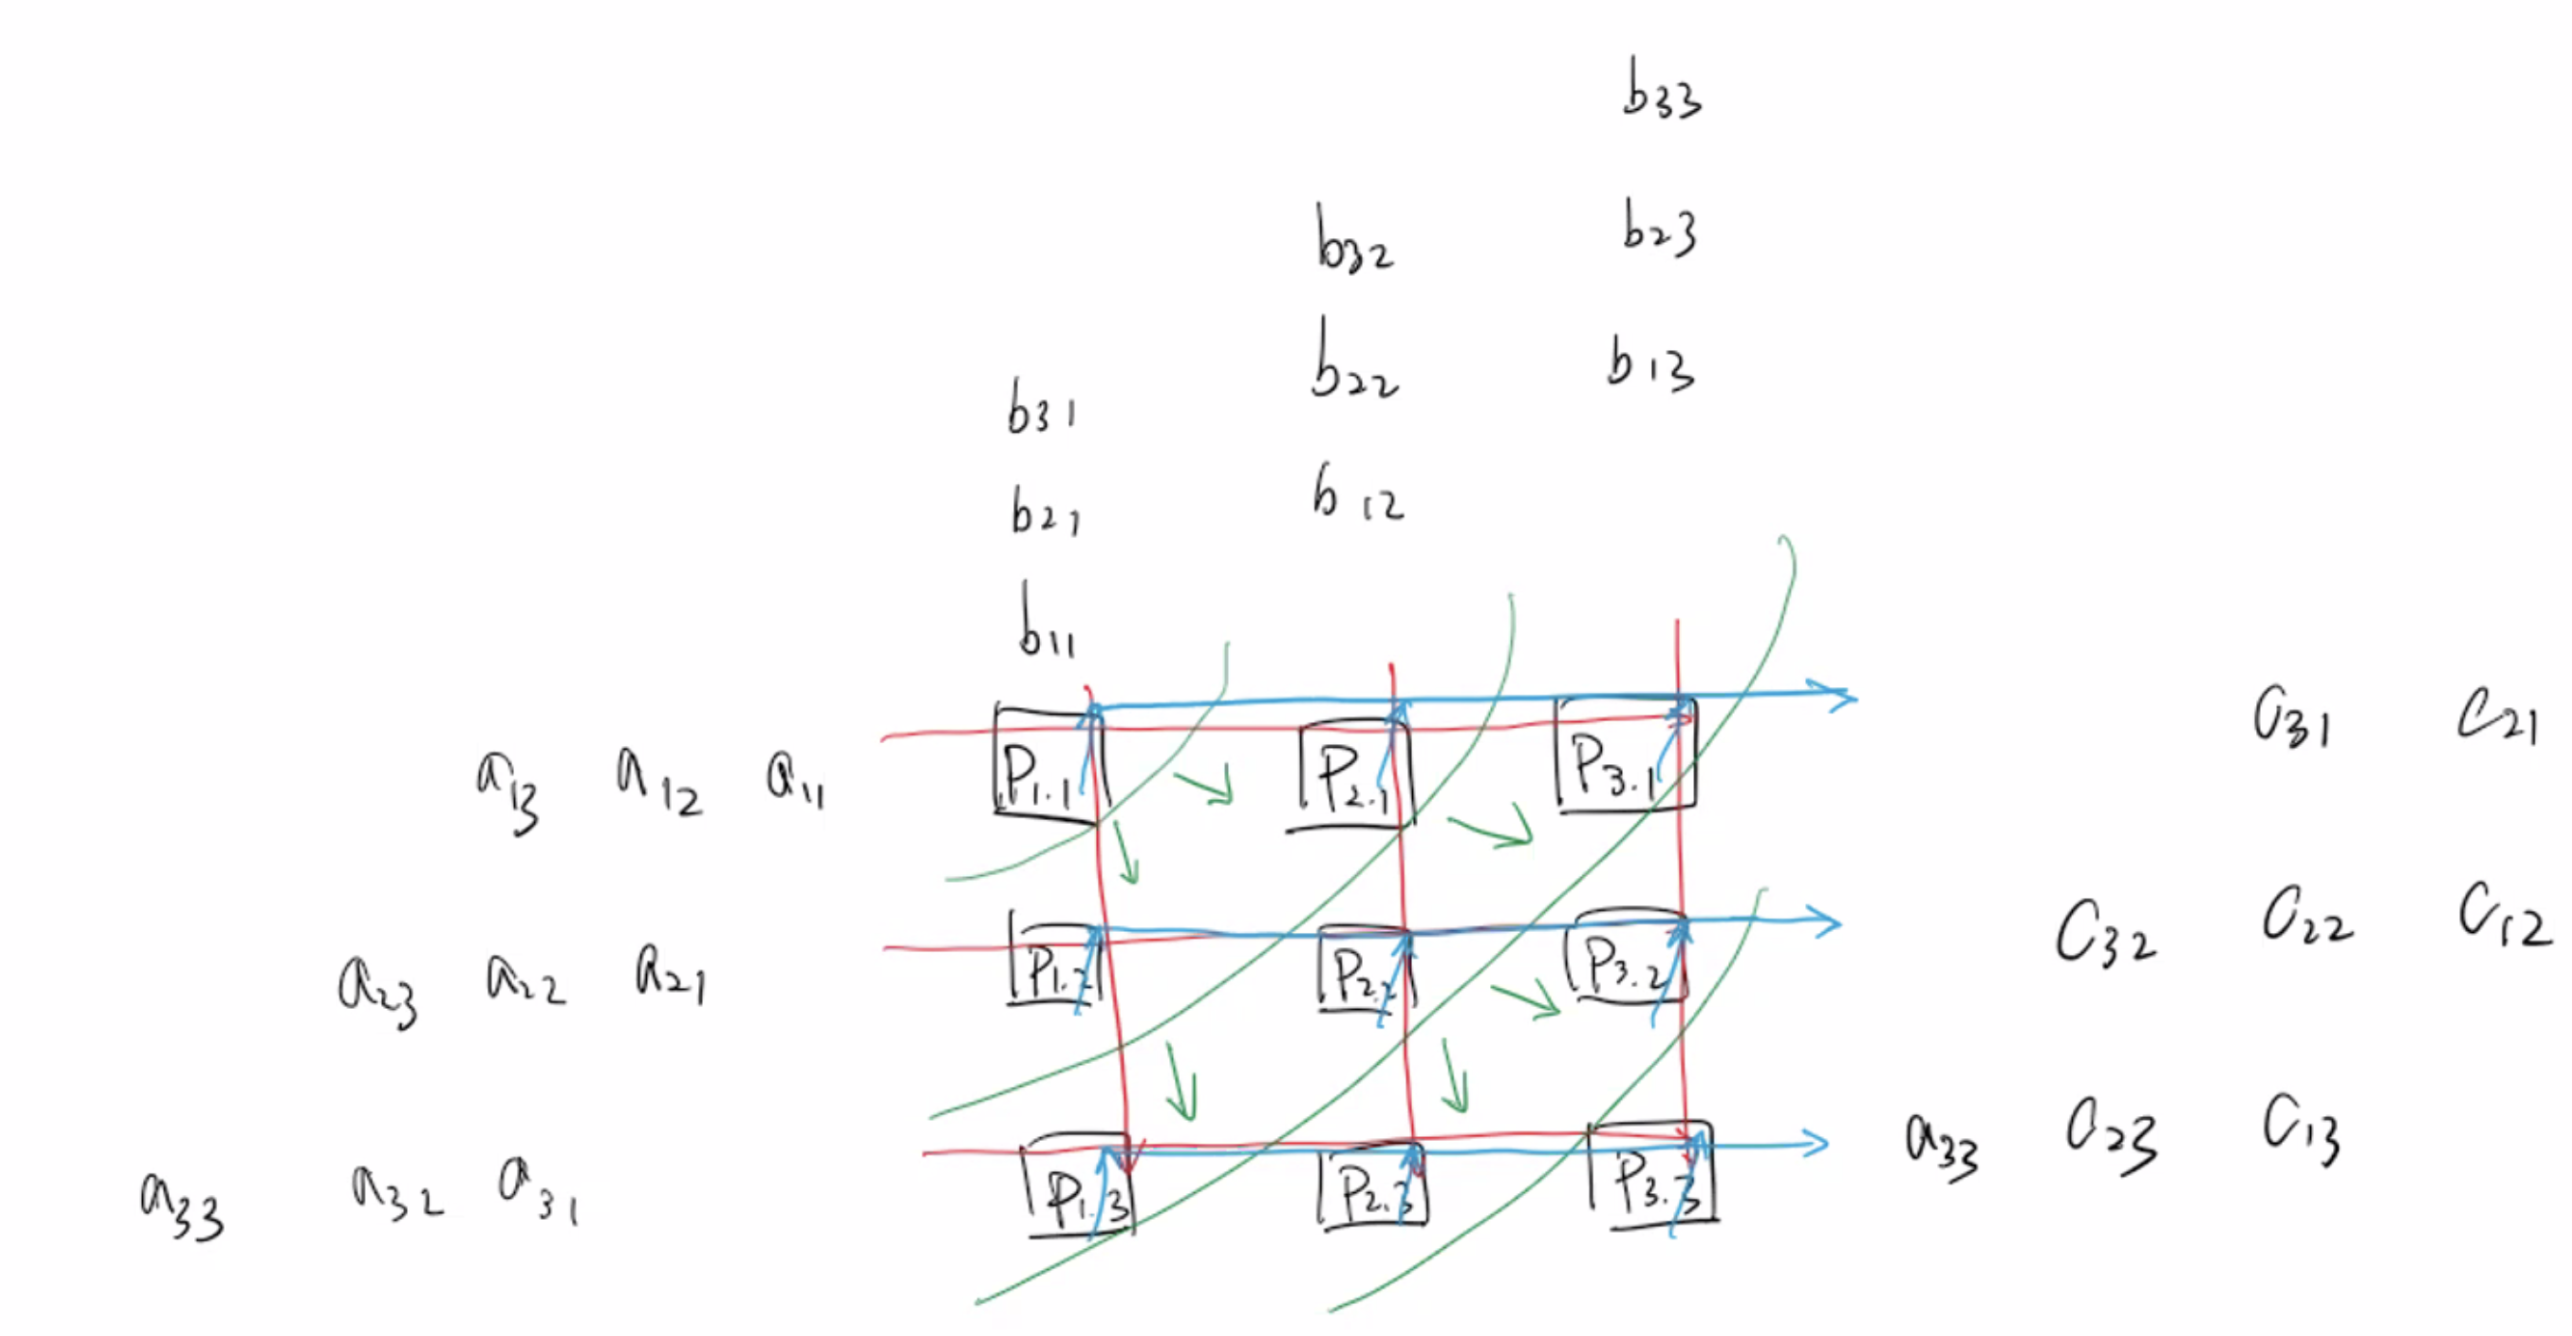 b33
b32 b23
b31 b22 b13
b21 b12
b11
a13 a12 a11 P1.1 P2.1 P3.1 C31 C21
a23 a22 a21 P1.2 P2.2 P3.2 C32 C22 C12
a33 a32 a31 P1.3 P2.3 P3.3 a33 C23 C13